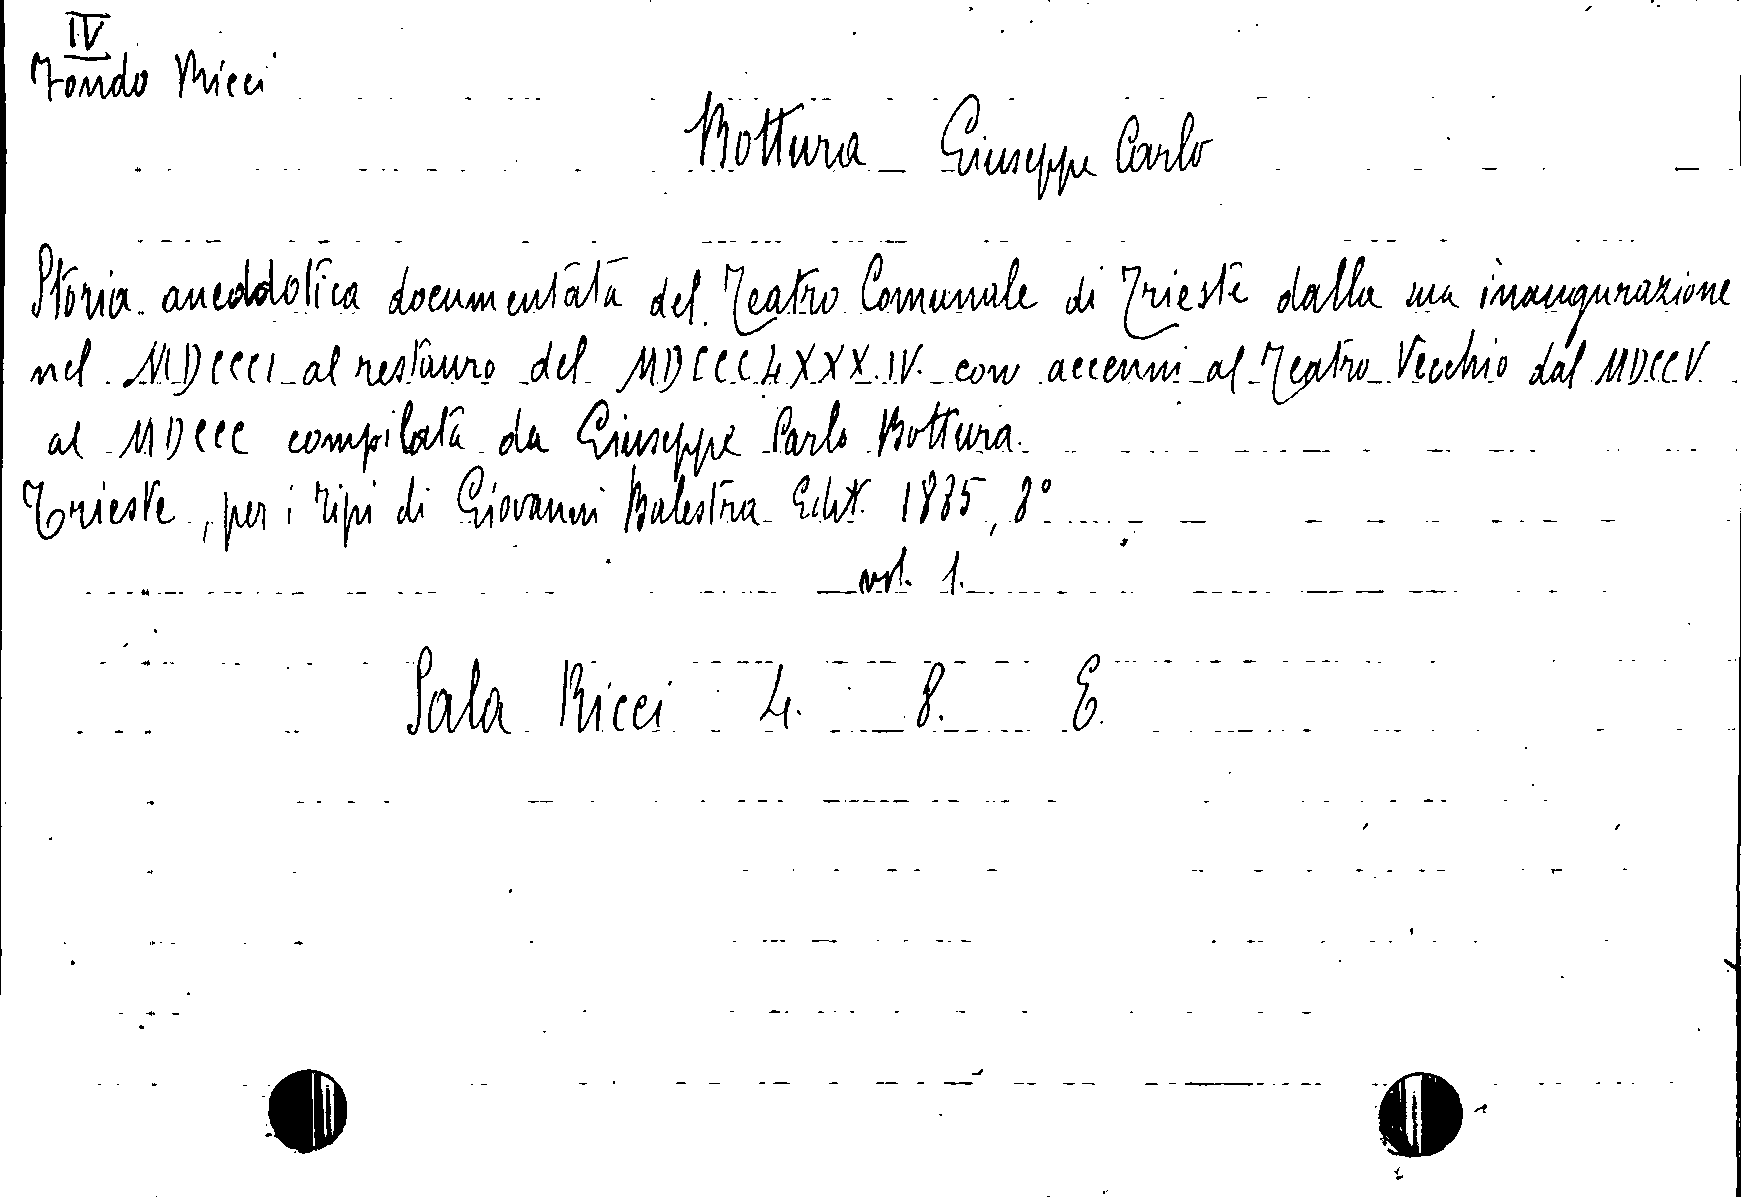 IV
Fondo Ricci
Bottura Giuseppe Carlo
Storia aneddotica documentata del Teatro Comunale di Trieste dalla sua inaugurazione
nel MDCCCI al restauro del MDCCCLXXXIV con accenni al Teatro Vecchio dal MDCCV
al MDCCC compilata da Giuseppe Carlo Bottura.
Trieste, per i tipi di Giovanni Balestra Edit. 1885, 8°
vol. 1.
Sala Ricci 4. 8. E.